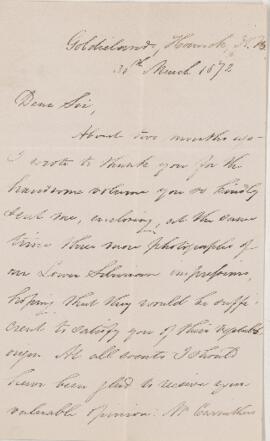 Goldielands, Hawick, N.B.
30th March 1872
Dear Sir,
About two months ago
I wrote to thank you for the
handsome volume you so kindly
sent me, enclosing, at the same
time three more photographs of
our Lower Silurian impressions,
hoping that they would be suffi-
cient to satisfy you of their vegetable
origin. At all events I should
have been glad to receive your
valuable opinion. Mr Carruthers